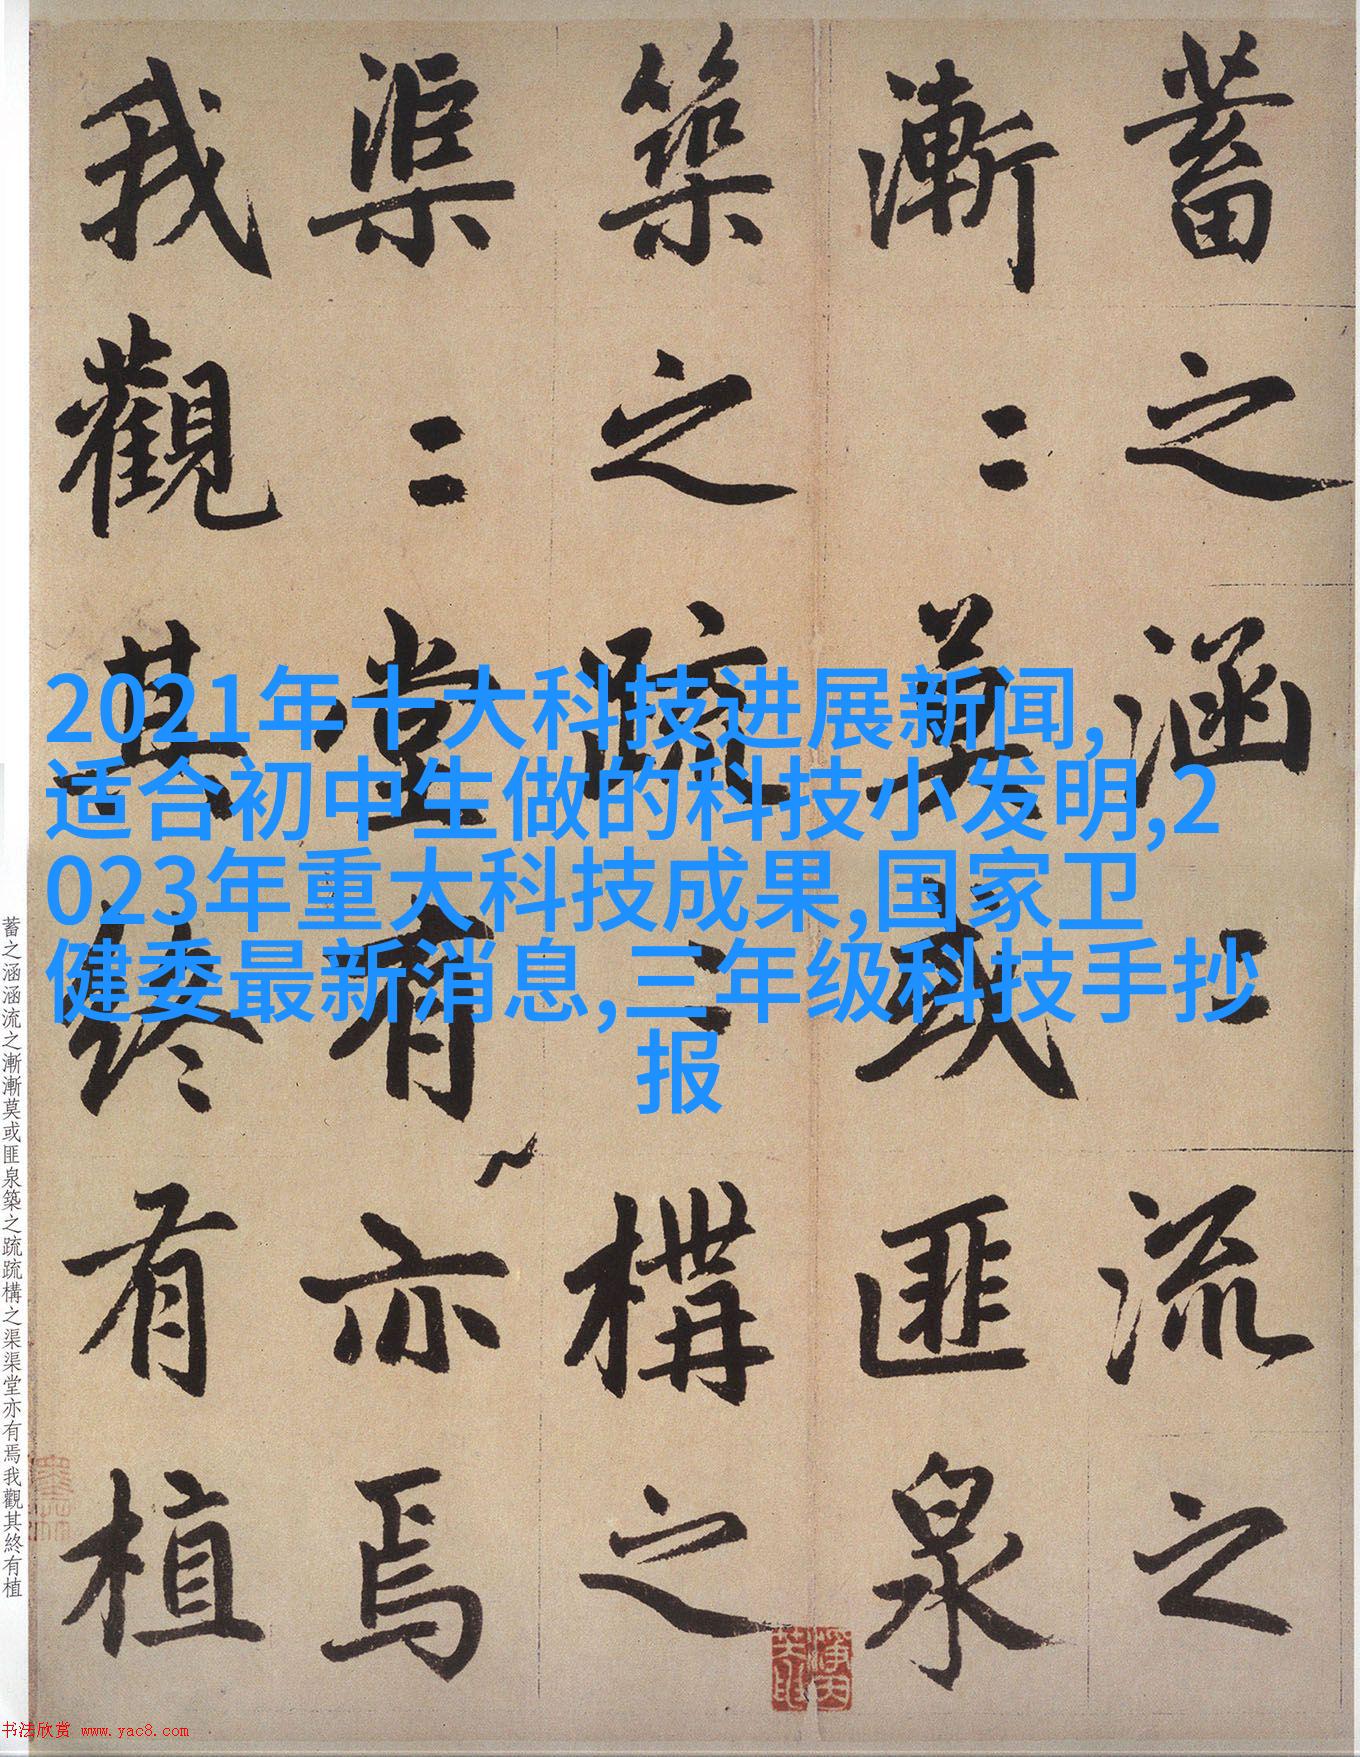 蓄之涵〻流之
漸〻莫或匪泉
築之疏〻構之
渠〻堂有亦焉
我觀其終有植
2021年十大科技进展新闻,
适合初中生做的科技小发明,2
023年重大科技成果,国家卫
健委最新消息,三年级科技手抄
报
蓄之涵涵流之漸漸莫或匪泉築之疏疏構之渠渠堂亦有焉我觀其終有植
书法欣赏 www.yac8.com